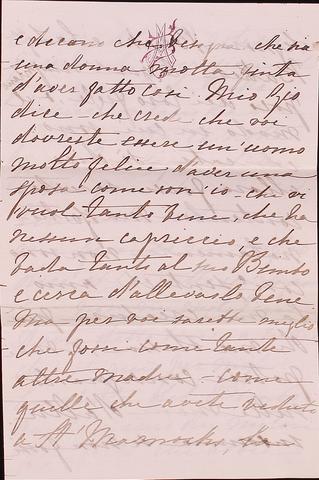 e dicono che bisogna che sia
una donna molto finta
d'aver fatto così. Mio Zio
dice - che cred che voi
dovreste essere un'uomo
molto felice, d'aver una
sposa come son'io - che vi
vuol tanto bene, che ha
nessun capriccio, e che
bada tanto al suo Bimbo
e cerca d'allevarlo bene
Ma per voi sarebbe meglio
che fossi come tante
altre madri - come
quelle che avete veduto
a St